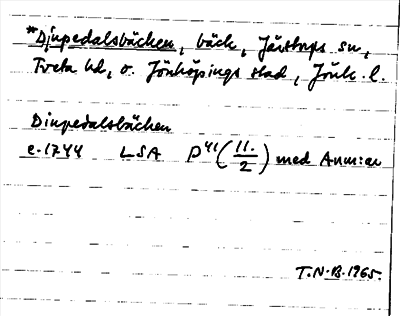 *Djupedalsbäcken, bäck, Järstorps sn,
Tveta hd, o. Jönköpings stad, Jönk. l.
Diupedalsbäcken
c. 1744 LSA P41 (11./2) med Anm:ar
T.N.B. 1965.